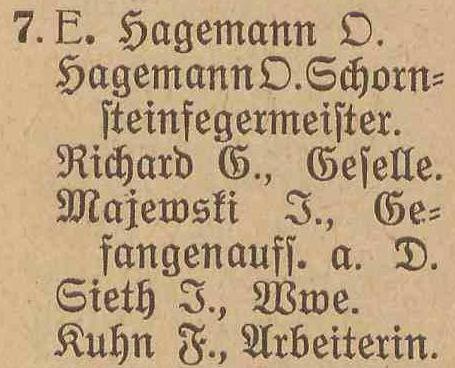 7. E. Hagemann O.
Hagemann O. Schorn=
steinfegermeister.
Richard G., Geselle.
Majewski I., Ge=
fangenauff. a. D.
Sieth I., Wwe.
Kuhn F., Arbeiterin.